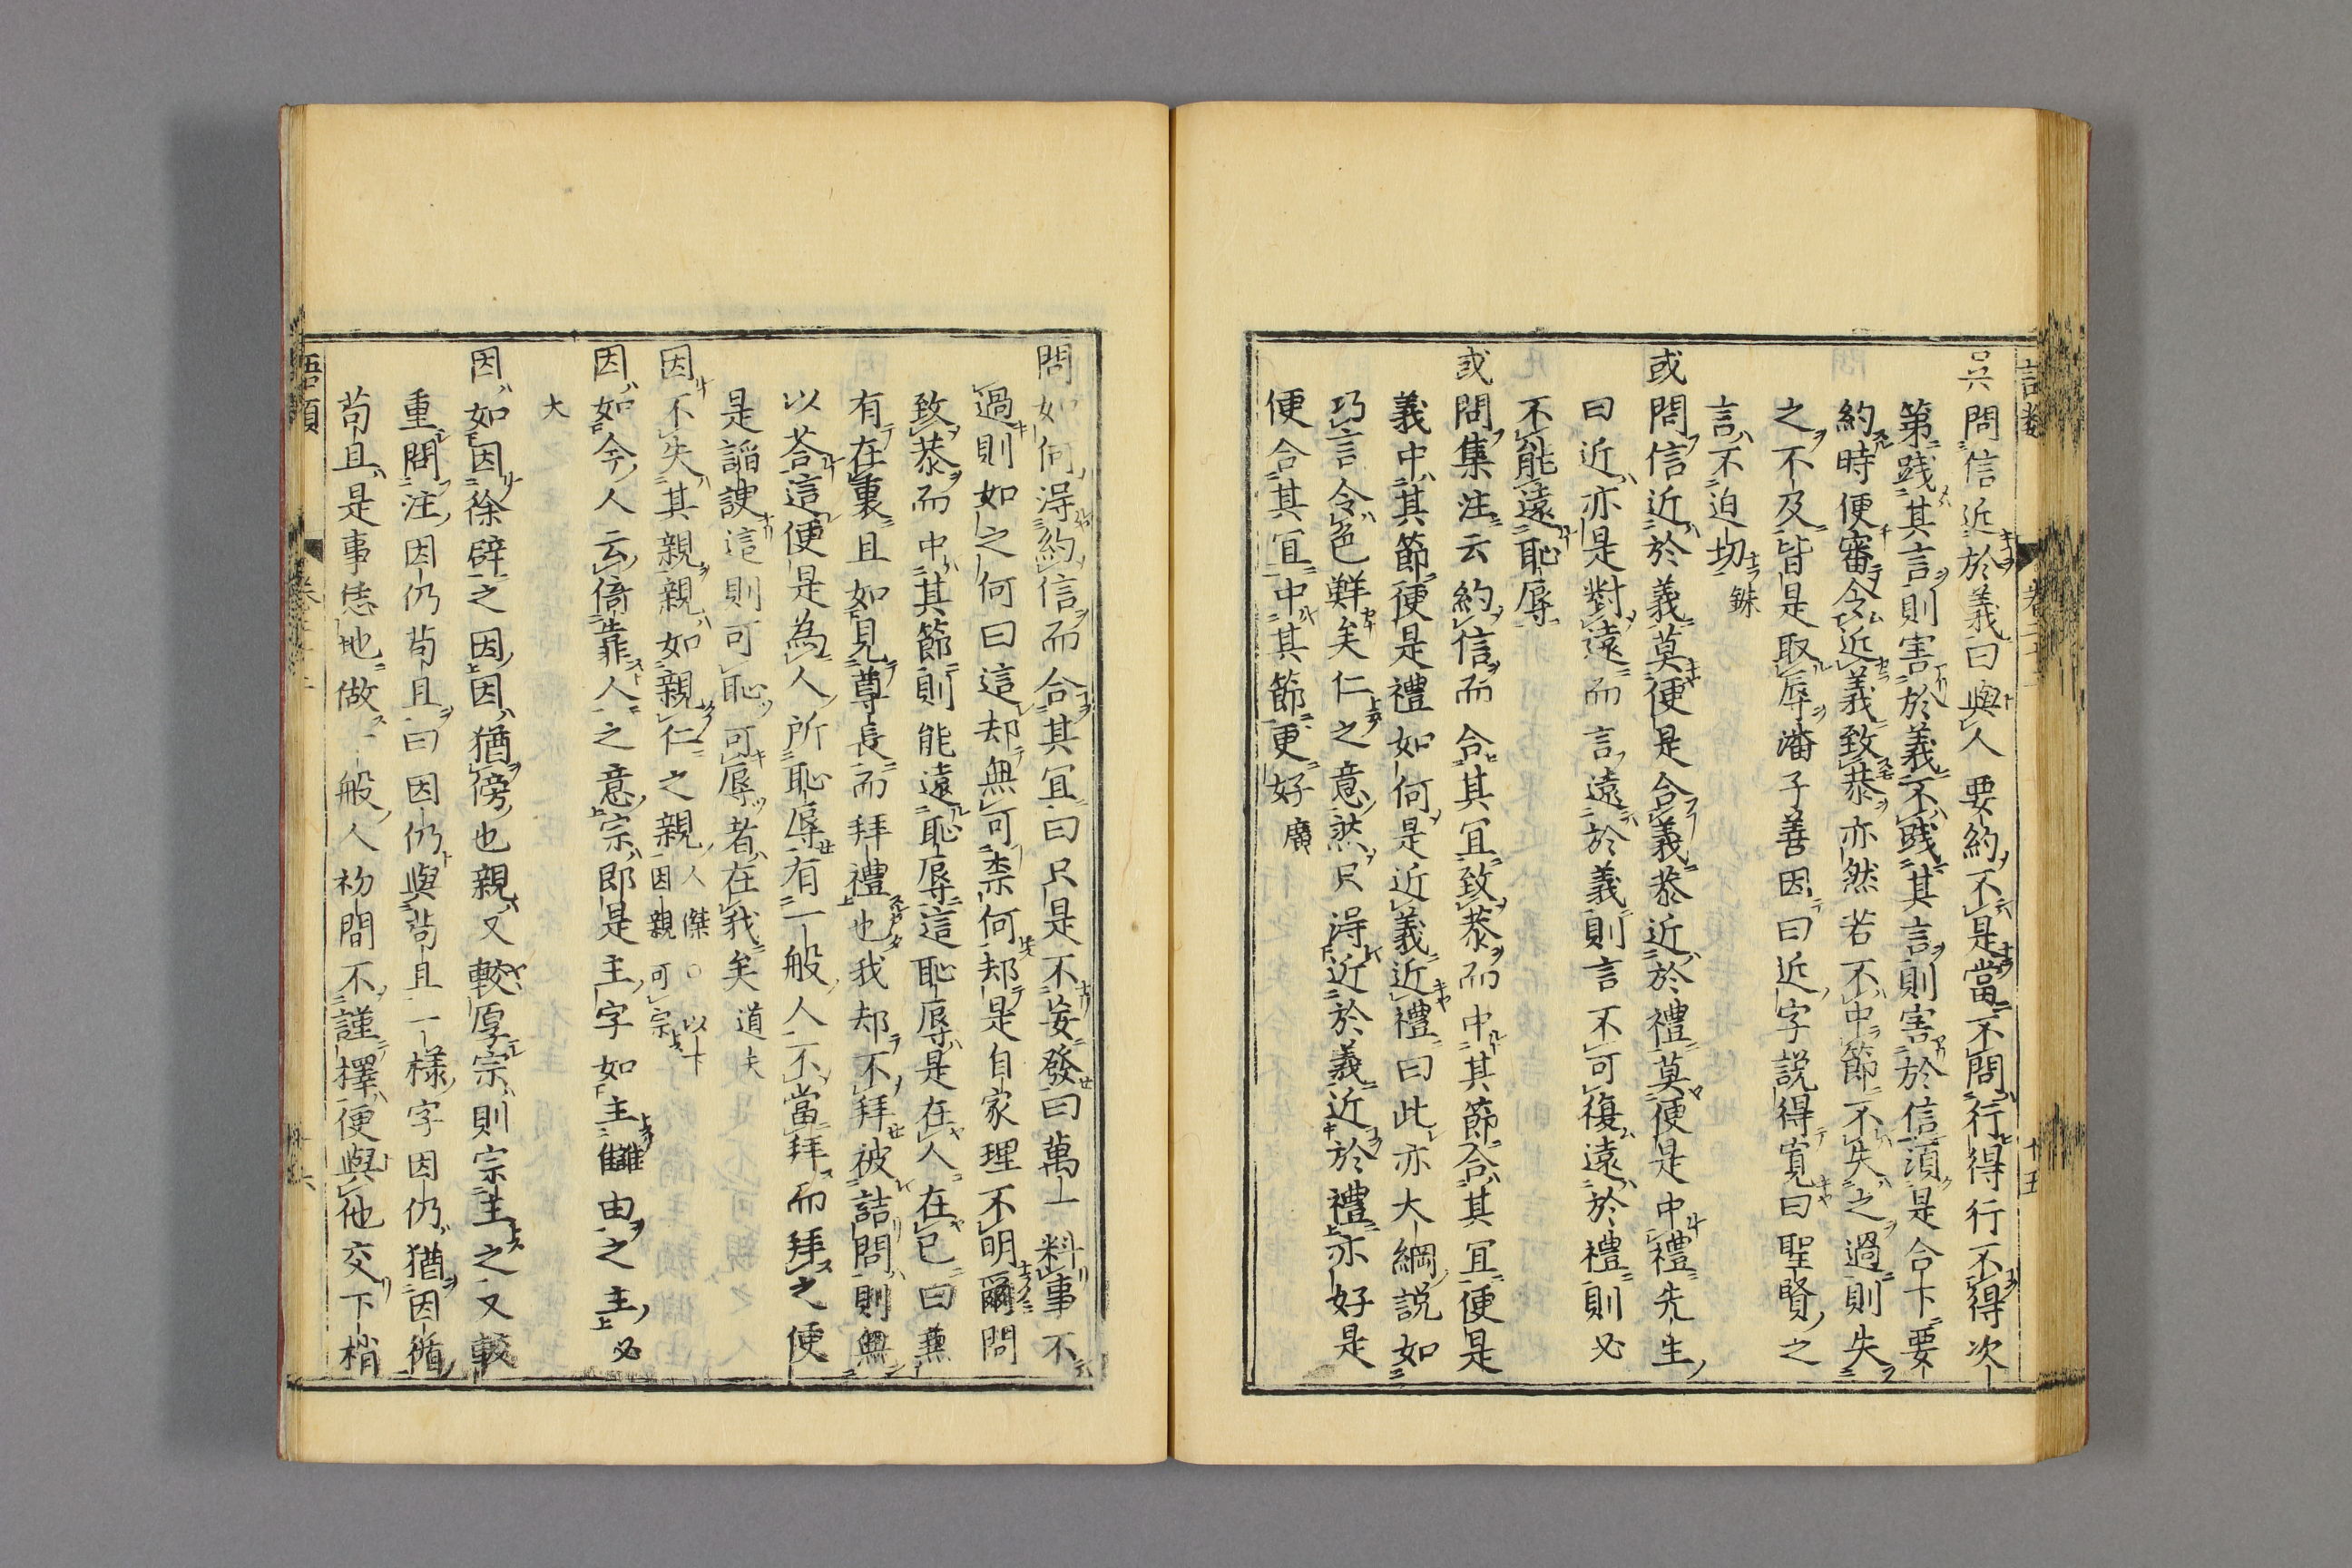 吳問信近於義曰與人要約不是當不問行得行不得次
第踐其言則害於義不踐其言則害於信須是合下要
約時便審令近義致恭亦然若不中節不失之過則失
之不及皆是取辱潘子善因曰近字説得寬曰聖賢之
言不迫切銖
或問信近於義莫便是合義恭近於禮莫便是中禮先生
曰近亦是對遠而言遠於義則言不可復遠於禮則必
不能遠恥辱
或問集注云約信而合其宜致恭而中其節合其宜便是
義中其節便是禮如何是近義近禮曰此亦大綱説如
巧言令色鮮矣仁之意然只得近於義近於禮亦好是
便合其宜中其節更好廣
問如何得約信而合其宜曰只是不妄發曰萬一料事不
過則如之何曰這却無可柰何却是自家理不明爾問
致恭而中其節則能遠恥辱這恥辱是在人在已曰兼
有在裏且如見尊長而拜禮也我却不拜被詰問則無
以荅這便是為人所恥辱有一般人不當拜而拜之便
是諂諛這則可恥可辱者在我矣道夫
因不失其親親如親仁之親人傑○以下因親可宗
因如今人云倚靠人之意宗即是主字如主讎由之主必
大
因如因徐辟之因因猶傍也親又較厚宗則宗主之又較
重問注因仍苟且曰因仍與苟且一樣字因仍猶因循
苟且是事恁地做一般人初間不謹擇便與他交下梢
語類